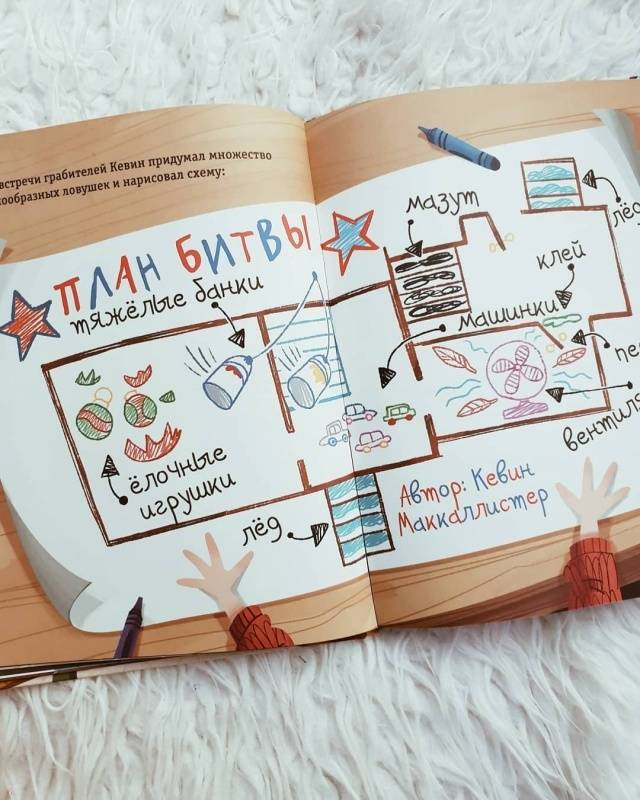 встречи грабителей Кевин придумал множество
ообразных ловушек и нарисовал схему:
ПЛАН БИТВЫ
тяжёлые банки
ёлочные
игрушки
лёд
мазут
лёд
клей
машинки
Автор: Кевин
Маккаллистер